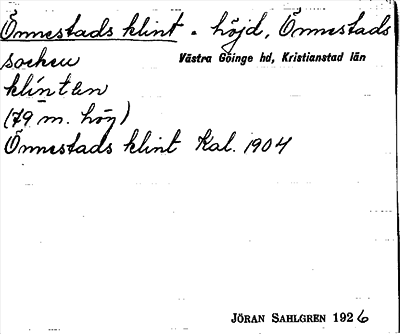 Önnestads klint - höjd, Önnestads
socken Västra Göinge hd, Kristianstad län
klínten
(79 m. hög)
Önnestads klint Kal. 1904
JÖRAN SAHLGREN 1926